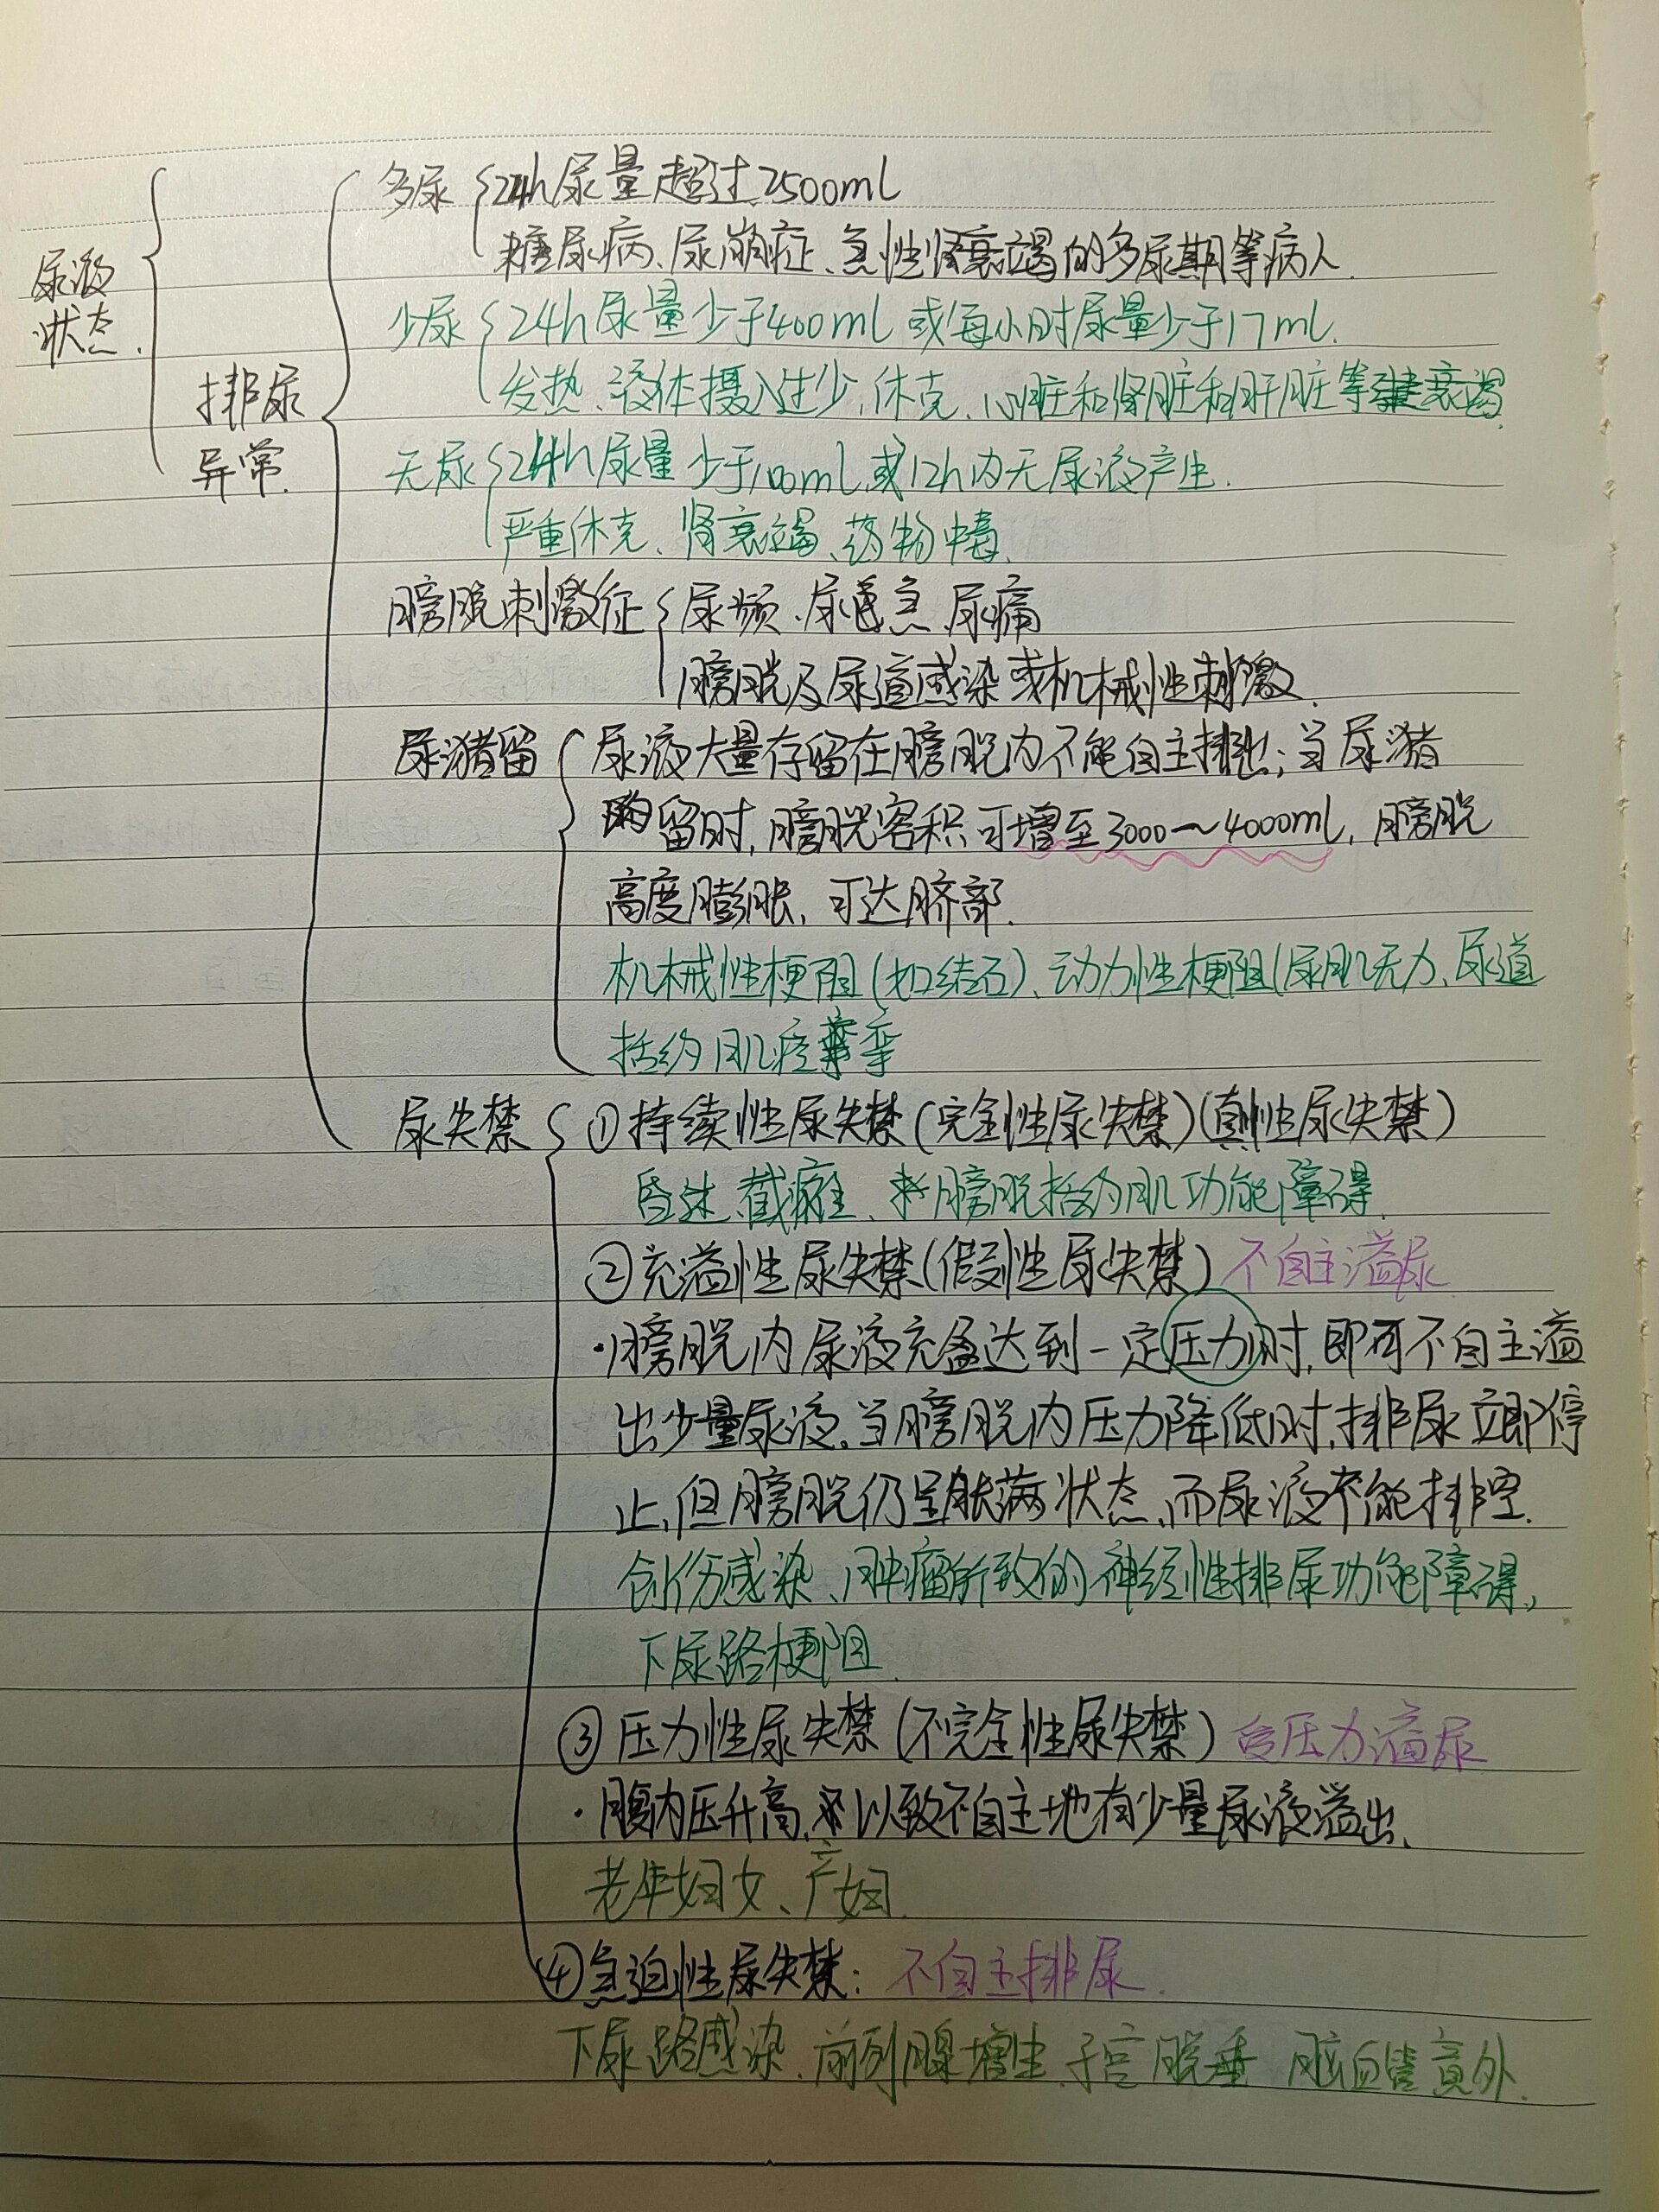 尿液
状态.
排尿
异常.
多尿 24h尿量超过2500ml
糖尿病、尿崩症、急性肾衰竭的多尿期等病人.
少尿 24h尿量少于400ml 或每小时尿量少于17ml.
发热、液体摄入过少、休克、心脏和肾脏和肝脏等衰竭.
无尿 24h尿量少于100ml或12h内无尿液产生.
严重休克、肾衰竭、药物中毒.
膀胱刺激征 尿频、尿急、尿痛
膀胱及尿道感染或机械性刺激.
尿潴留 尿液大量存留在膀胱内不能自主排出;当尿潴
留时,膀胱容积可增至3000~4000ml,膀胱
高度膨胀,可达脐部.
机械性梗阻(如结石)、动力性梗阻(尿肌无力、尿道
括约肌痉挛
尿失禁 ①持续性尿失禁(完全性尿失禁)(真性尿失禁)
昏迷、截瘫、膀胱括约肌功能障碍.
②充溢性尿失禁(假性尿失禁) 不自主溢尿
·膀胱内尿液充盈达到一定压力时,即可不自主溢
出少量尿液。当膀胱内压力降低时,排尿立即停
止,但膀胱仍呈胀满状态、而尿液不能排空.
创伤感染、肿瘤所致的神经性排尿功能障碍,
下尿路梗阻.
③压力性尿失禁(不完全性尿失禁) 受压力溢尿
·腹内压升高,以致不自主地有少量尿液溢出、
老年妇女、产妇.
④急迫性尿失禁: 不自主排尿.
下尿路感染、前列腺增生、子宫脱垂 脑血管意外.